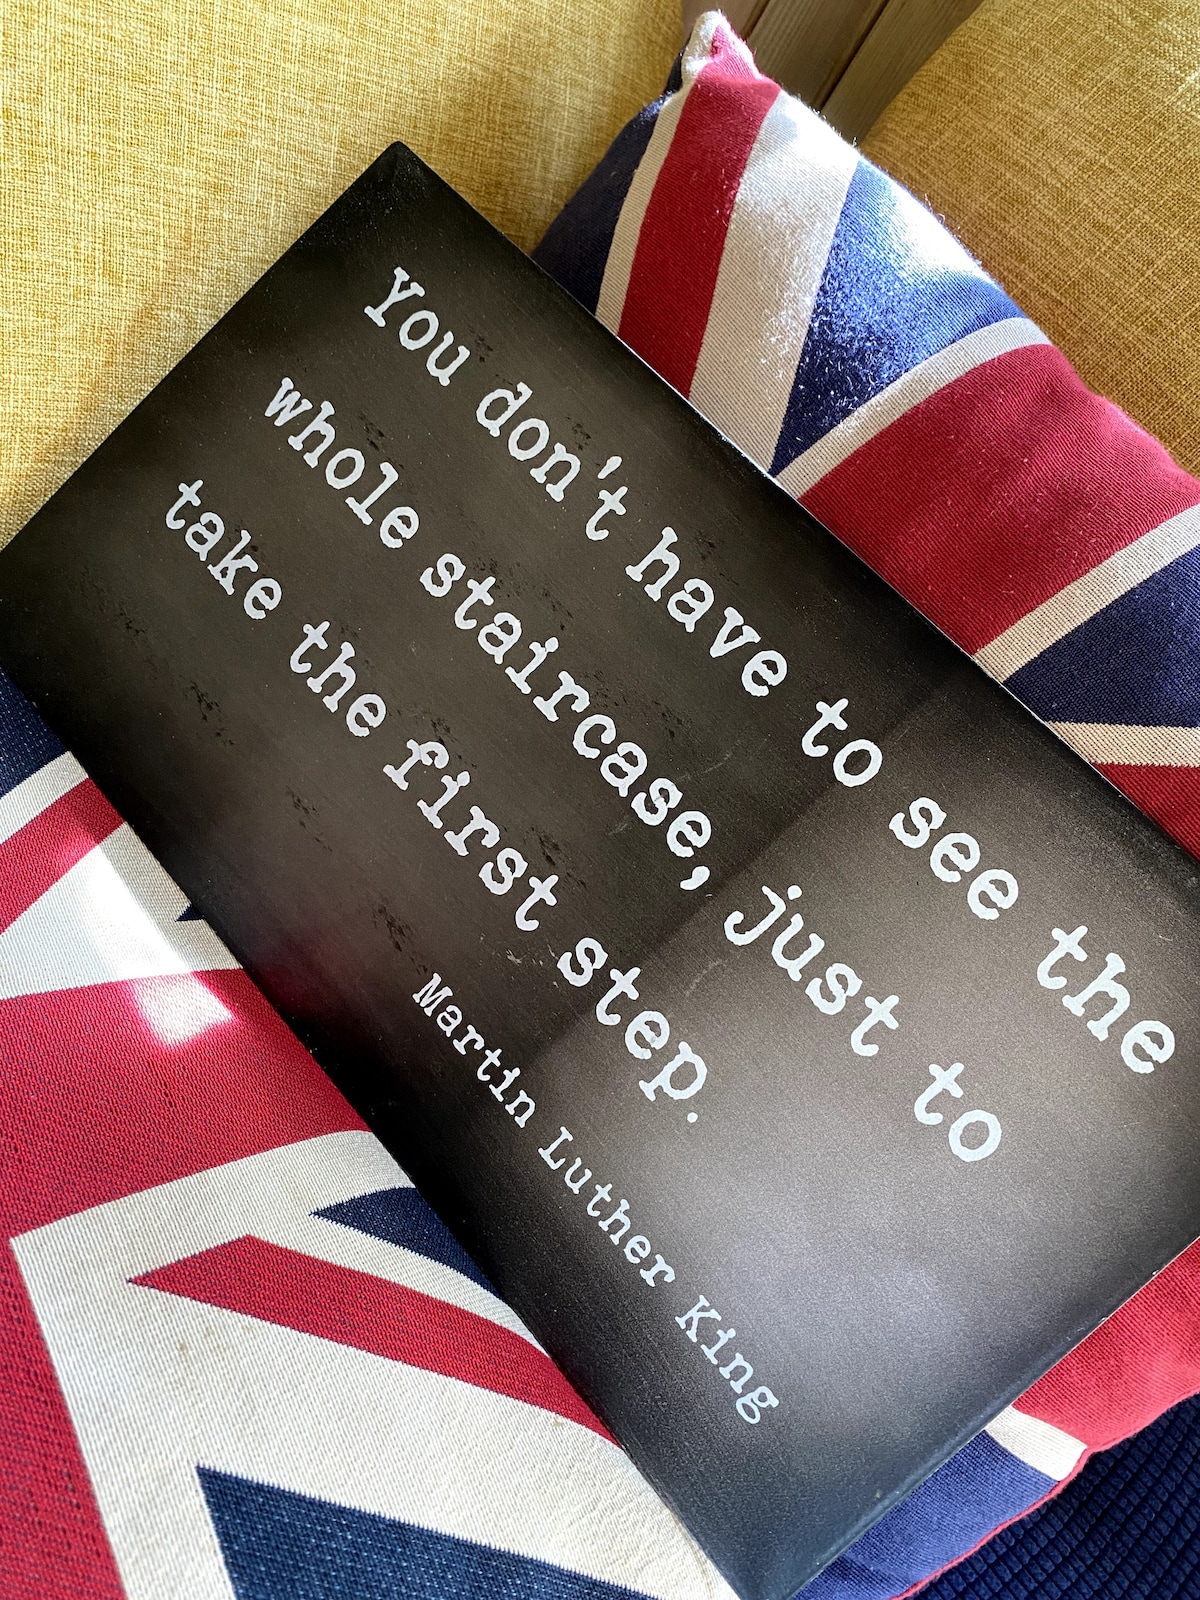 You don't have to see the
whole staircase, just to
take the first step.
Martin Luther King